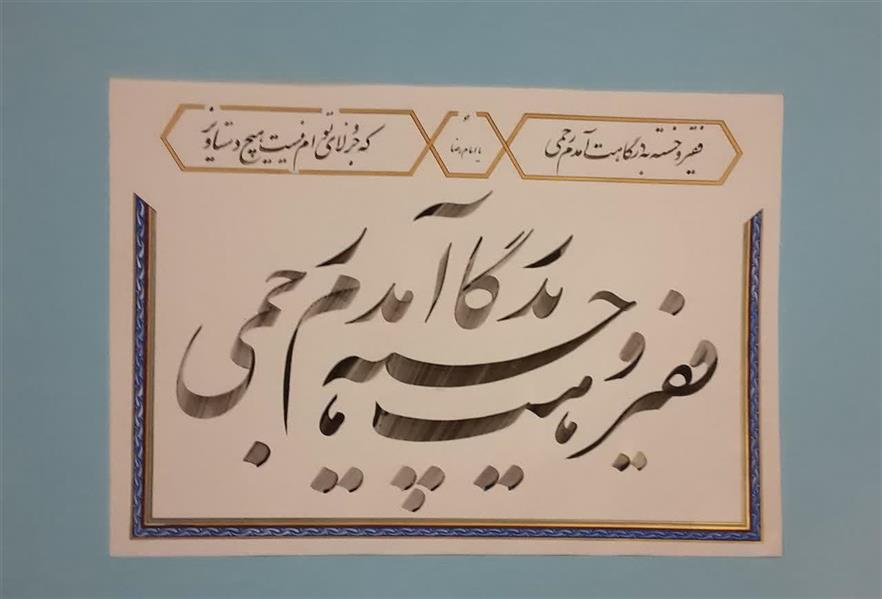 فقیر و خسته به درگاهت آمدم رحمی
هو
یا امام رضا
که جز ولای توام نیست هیچ دستاویز
فقیر و خسته به درگاهت آمدم رحمی